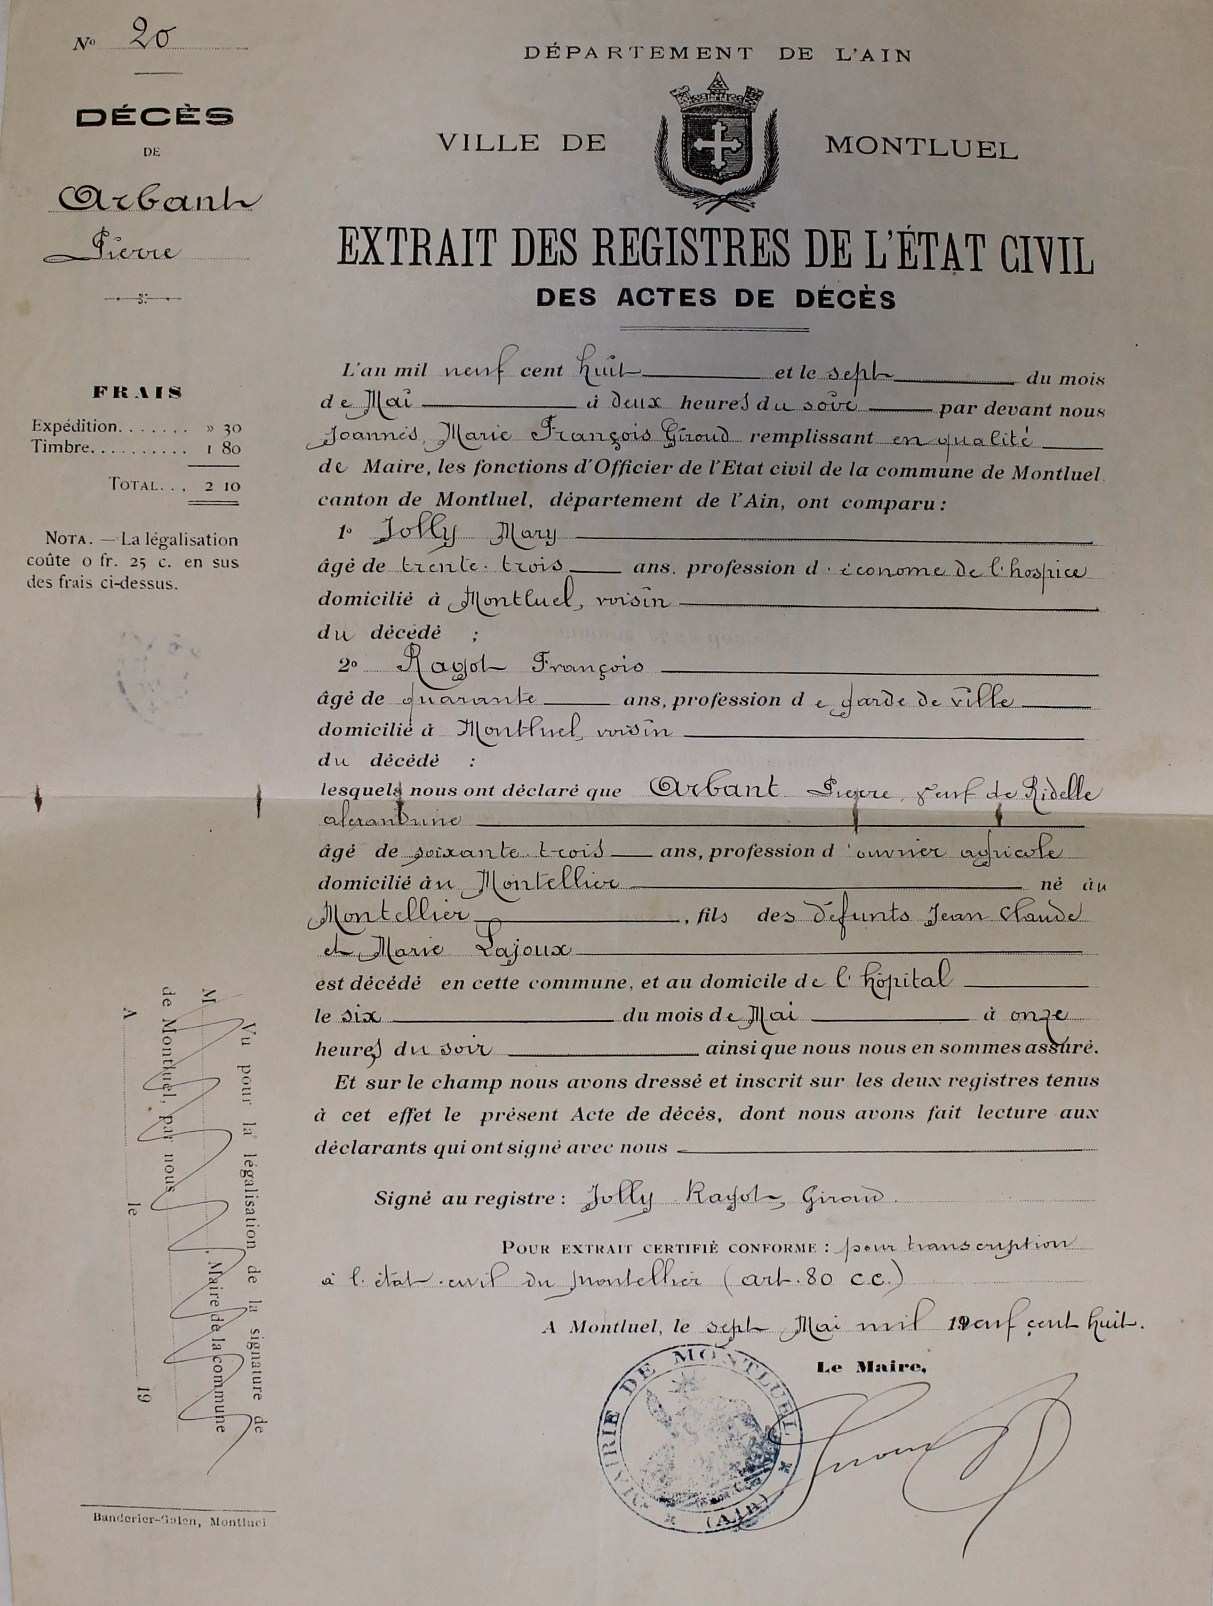 N° 20
DÉCÈS
DE
Arbant
Pierre
FRAIS
Expédition....... » 30
Timbre.......... 1 80
TOTAL... 2 10
NOTA. — La légalisation
coûte 0 fr. 25 c. en sus
des frais ci-dessus.
DÉPARTEMENT DE L'AIN
VILLE DE MONTLUEL
EXTRAIT DES REGISTRES DE L'ÉTAT CIVIL
DES ACTES DE DÉCÈS
L'an mil neuf cent huit et le sept du mois
de Mai à deux heures du soir par devant nous
Joannès, Marie François Giroud remplissant en qualité
de Maire, les fonctions d'Officier de l'Etat civil de la commune de Montluel
canton de Montluel, département de l'Ain, ont comparu :
1° Jolly Mary
âgé de trente-trois ans, profession d'économe de l'hospice
domicilié à Montluel, voisin
du décédé ;
2° Rayot François
âgé de quarante ans, profession de garde de ville
domicilié à Montluel, voisin
du décédé :
lesquels nous ont déclaré que Arbant Pierre, veuf de Ridelle
alexandrine
âgé de soixante-trois ans, profession d'ouvrier agricole
domicilié au Montellier né au
Montellier, fils des défunts Jean Claude
et Marie Lajoux
est décédé en cette commune, et au domicile de l'hôpital
le six du mois de Mai à onze
heures du soir ainsi que nous nous en sommes assuré.
Et sur le champ nous avons dressé et inscrit sur les deux registres tenus
à cet effet le présent Acte de décés, dont nous avons fait lecture aux
déclarants qui ont signé avec nous
Signé au registre : Jolly Rayot, Giroud.
POUR EXTRAIT CERTIFIÉ CONFORME : pour transcription
à l'état-civil du montellier (art. 80 c.c.)
A Montluel, le sept Mai mil 19euf cent huit.
Le Maire,
MAIRIE DE MONTLUEL
(AIN)
Vu pour la légalisation de la signature de
M Maire de la commune
de Montluel, par nous
A le 19
Banderier-Galen, Montluel